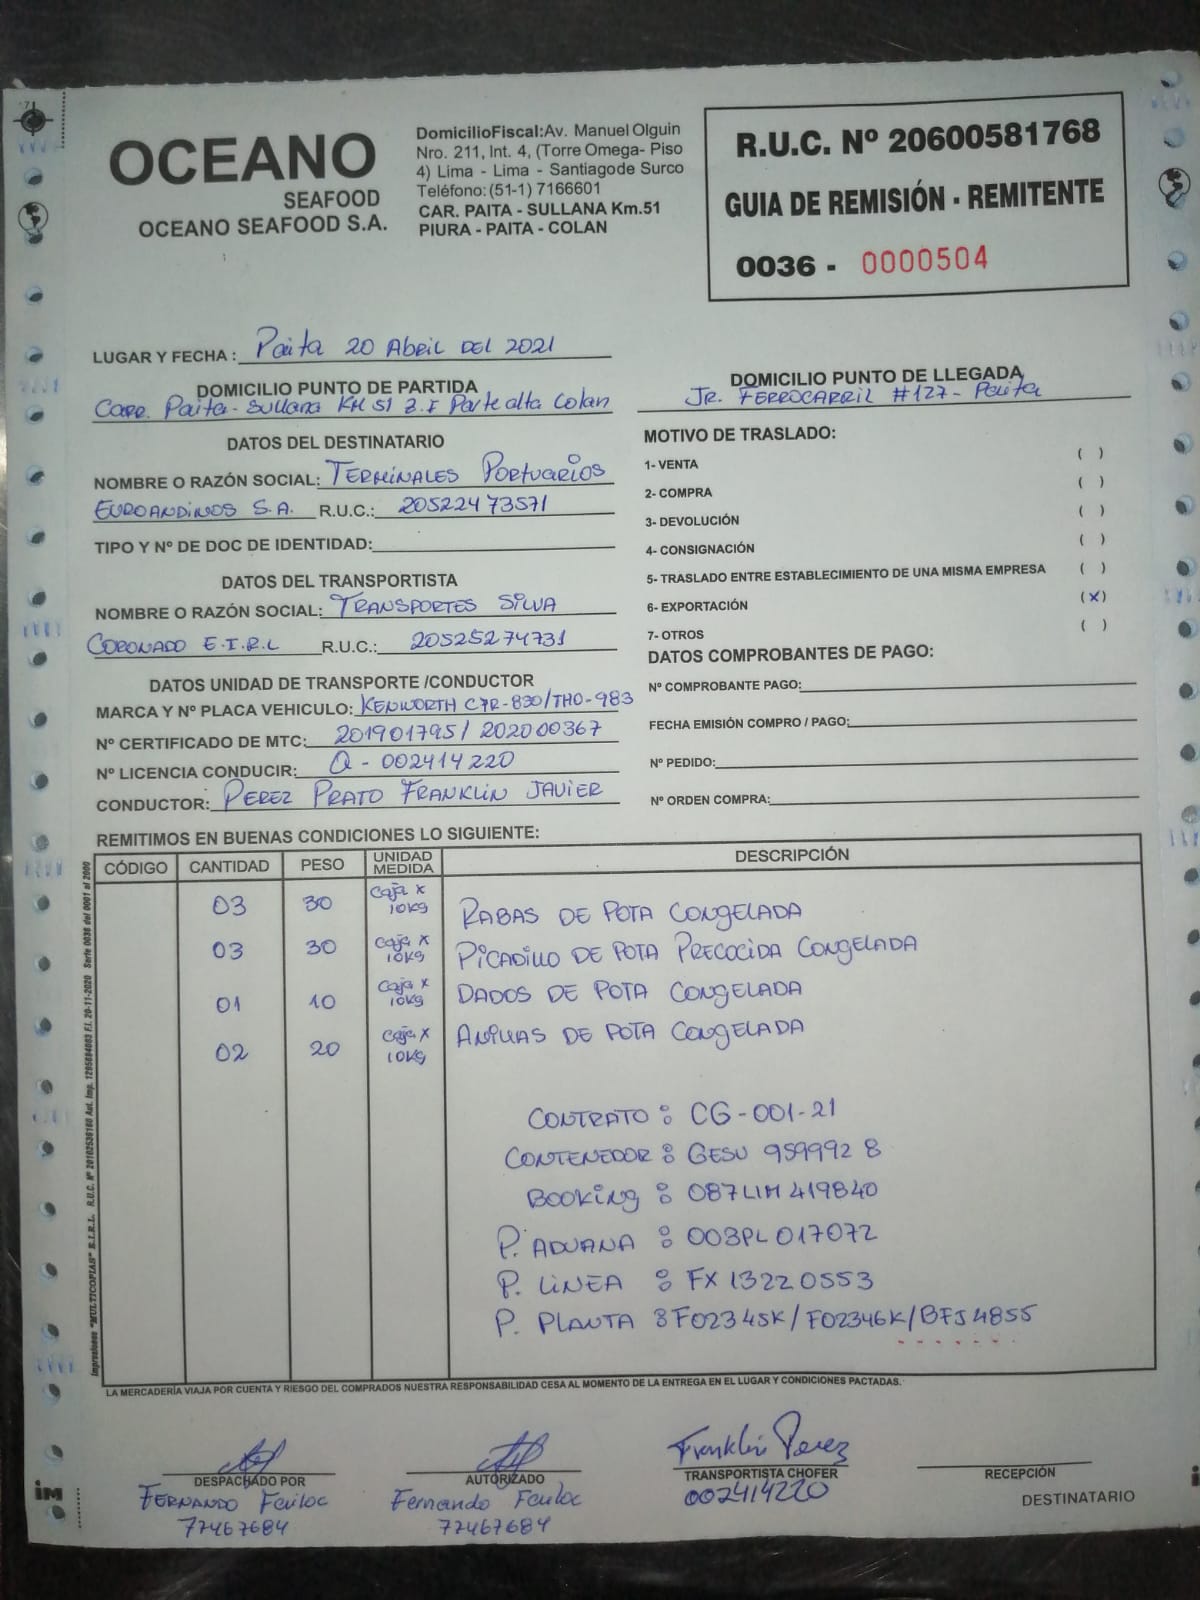 OCEANO
SEAFOOD
OCEANO SEAFOOD S.A.
DomicilioFiscal:Av. Manuel Olguin
Nro. 211, Int. 4, (Torre Omega- Piso
4) Lima - Lima - Santiagode Surco
Teléfono:(51-1) 7166601
CAR. PAITA - SULLANA Km.51
PIURA - PAITA - COLAN
R.U.C. Nº 20600581768
GUIA DE REMISIÓN - REMITENTE
0036 - 0000504
LUGAR Y FECHA : Paita 20 Abril DEL 2021
DOMICILIO PUNTO DE PARTIDA
Carr. Paita - Sullana KM 51 Z.I Parte alta Colan
DOMICILIO PUNTO DE LLEGADA
JR. FERROCARRIL #127 - Paita
DATOS DEL DESTINATARIO
NOMBRE O RAZÓN SOCIAL: TERMINALES PORTUARIOS
EUROANDINOS S.A. R.U.C.: 20522473571
TIPO Y Nº DE DOC DE IDENTIDAD:
DATOS DEL TRANSPORTISTA
NOMBRE O RAZÓN SOCIAL: TRANSPORTES SILVA
CORONADO E.I.R.L R.U.C.: 20525274731
DATOS UNIDAD DE TRANSPORTE /CONDUCTOR
MARCA Y Nº PLACA VEHICULO: KENWORTH C7R-830/THO-983
Nº CERTIFICADO DE MTC: 201901795/ 202000367
Nº LICENCIA CONDUCIR: Q - 002414220
CONDUCTOR: PEREZ PRATO FRANKLIN JAVIER
MOTIVO DE TRASLADO:
1- VENTA ( )
2- COMPRA ( )
3- DEVOLUCIÓN ( )
4- CONSIGNACIÓN ( )
5- TRASLADO ENTRE ESTABLECIMIENTO DE UNA MISMA EMPRESA ( )
6- EXPORTACIÓN (X)
7- OTROS ( )
DATOS COMPROBANTES DE PAGO:
Nº COMPROBANTE PAGO:
FECHA EMISIÓN COMPRO / PAGO:
Nº PEDIDO:
Nº ORDEN COMPRA:
REMITIMOS EN BUENAS CONDICIONES LO SIGUIENTE:
CÓDIGO CANTIDAD PESO UNIDAD MEDIDA DESCRIPCIÓN
03 30 Caja x 10Kg RABAS DE POTA CONGELADA
03 30 Caja x 10Kg PICADILLO DE POTA PRECOCIDA CONGELADA
01 10 Caja x 10Kg DADOS DE POTA CONGELADA
02 20 Caja x 10Kg ANILLAS DE POTA CONGELADA
CONTRATO : CG-001-21
CONTENEDOR : GESU 959992 8
BOOKING : 087LIM419840
P. ADUANA : 003PL017072
P. LINEA : FX13220553
P. PLANTA : F02345K/F02346K/BFJ4855
LA MERCADERÍA VIAJA POR CUENTA Y RIESGO DEL COMPRADOS NUESTRA RESPONSABILIDAD CESA AL MOMENTO DE LA ENTREGA EN EL LUGAR Y CONDICIONES PACTADAS.
Impresiones "MULTICOPIAS" E.I.R.L. R.U.C. Nº 20102536160 Aut. Imp. 1295684083 F.I. 20-11-2020 Serie 0036 del 0001 al 2000
DESPACHADO POR
FERNANDO
77467684
AUTORIZADO
Fernando
77467684
Franklin Perez
TRANSPORTISTA CHOFER
002414220
RECEPCIÓN
DESTINATARIO
iM